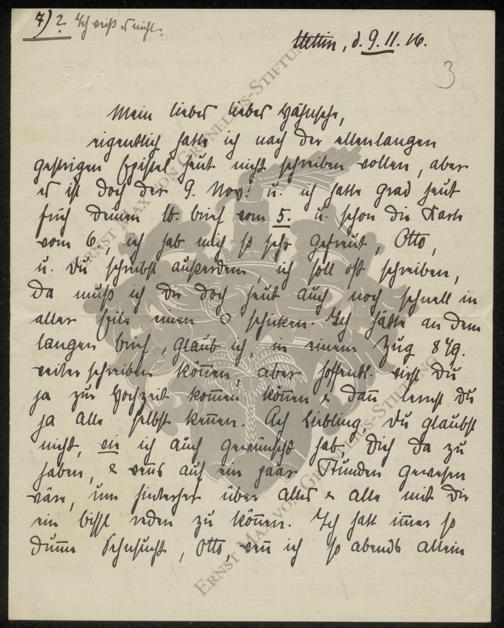 7) ? Ich weiß es nicht.
Stettin, d. 9. 11. 16.
3
Mein lieber lieber
eigentlich hatte ich nach der ellenlangen
gestrigen Epistel heut nicht schreiben wollen, aber
es ist doch der 9. Nov! u. ich hatte grad heut
früh deinen lb. Brief vom 5. u. schon die Karte
vom 6., ich hab mich so sehr gefreut, Otto
u. Du schreibst außerdem ich soll oft schreiben,
da muß ich dir doch heut auch noch schnell in
aller Eile einen schicken. Ich hätte an dem
langen Brief, glaub ich, in einem Zug
weiter schreiben können, aber hoffentl. wirst Du
ja zur Hochzeit kommen können & dann lernst Du
ja alle selbst kennen. Ach Liebling, Du glaubst
nicht, wie ich auch gewünscht hab, Dich da zu
haben, & wenns auch ein paar Stunden gewesen
wäre, um hinterher über alles & alle mit Dir
ein bissl reden zu können. Ich hatt immer so
dumme Sehnsucht, Otto, wenn ich so abends allein
ERNST MAX VON GRUNELIUS-STIFTUNG
ERNST MAX VON GRUNELIUS-STIFTUNG